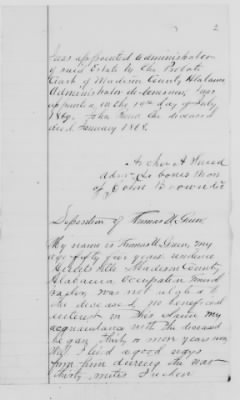 2
was appointed administrator
of said Estate by the Probate
Court of Madison County Alabama
Administrator de bonis non, was
appointed on the 19th day of July
1869. John Brown the deceased
died January 1868.
Archer A Sneed
admr de bonis non
of John Brown decd
Deposition of Thomas W. Green
My name is Thomas W. Green, my
age fifty four years, residence
Madison County
Alabama Occupation
was not related to
the deceased, no beneficial
interest in this claim, my
acquaintance with the deceased
began thirty or more years ago
I lived a good ways
from him during the war
thirty miles I reckon